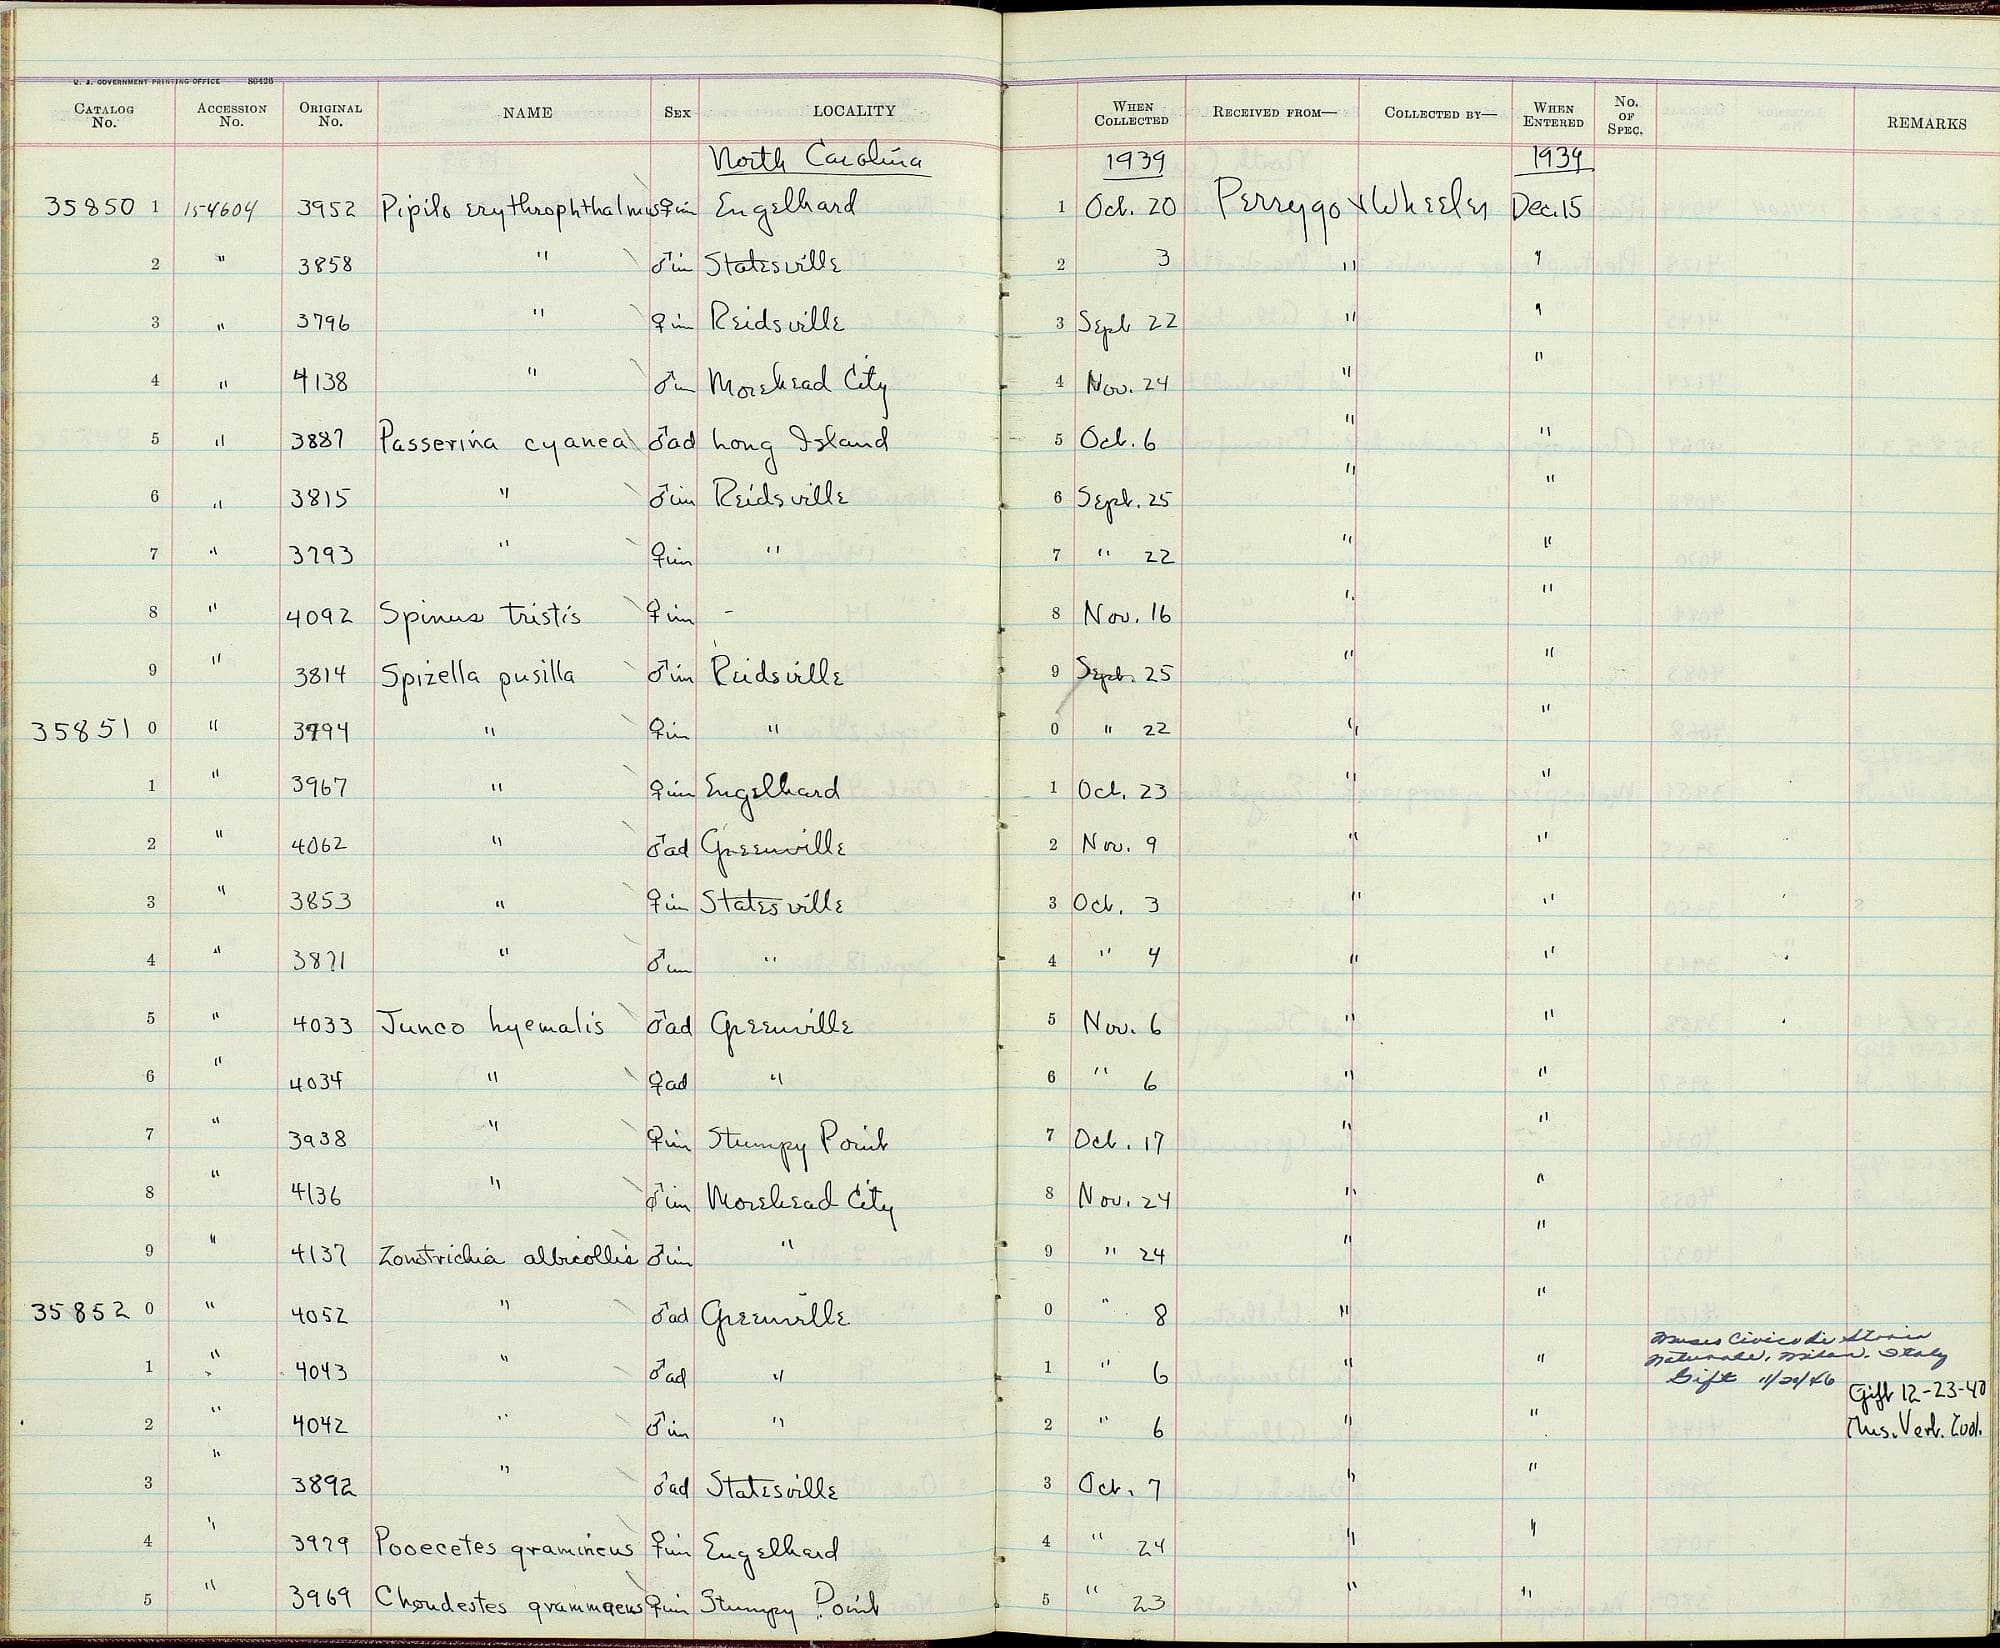 U. S. GOVERNMENT PRINTING OFFICE 80426
CATALOG No. ACCESSION No. ORIGINAL No. NAME SEX LOCALITY WHEN COLLECTED RECEIVED FROM— COLLECTED BY— WHEN ENTERED No. OF SPEC. REMARKS
North Carolina 1939 1939
35850 1 154604 3952 Pipilo erythrophthalmus ♀im Engelhard 1 Oct. 20 Perrygo & Wheeler Dec. 15
2 " 3858 " ♂im Statesville 2 3 " "
3 " 3796 " ♀im Reidsville 3 Sept 22 " "
4 " 4138 " ♂im Morehead City 4 Nov. 24 " "
5 " 3887 Passerina cyanea ♂ad Long Island 5 Oct. 6 " "
6 " 3815 " ♂im Reidsville 6 Sept. 25 " "
7 " 3793 " ♀im " 7 " 22 " "
8 " 4092 Spinus tristis ♀im - 8 Nov. 16 " "
9 " 3814 Spizella pusilla ♂im Reidsville 9 Sept. 25 " "
35851 0 " 3794 " ♀im " 0 " 22 " "
1 " 3967 " ♀im Engelhard 1 Oct. 23 " "
2 " 4062 " ♂ad Greenville 2 Nov. 9 " "
3 " 3853 " ♀im Statesville 3 Oct. 3 " "
4 " 3871 " ♂im " 4 " 4 " "
5 " 4033 Junco hyemalis ♂ad Greenville 5 Nov. 6 " "
6 " 4034 " ♀ad " 6 " 6 " "
7 " 3938 " ♀im Stumpy Point 7 Oct. 17 " "
8 " 4136 " ♂im Morehead City 8 Nov. 24 " "
9 " 4137 Zonotrichia albicollis ♂im " 9 " 24 " "
35852 0 " 4052 " ♂ad Greenville 0 " 8 " "
Museo Civico di Storia
Naturale, Milan, Italy
1 " 4043 " ♂ad " 1 " 6 " " Gift 11/20/46
Gift 12-23-40
2 " 4042 " ♂im " 2 " 6 " " Mus. Vert. Zool.
3 " 3892 " ♂ad Statesville 3 Oct. 7 " "
4 " 3979 Pooecetes gramineus ♀im Engelhard 4 " 24 " "
5 " 3969 Chondestes grammacus ♀im Stumpy Point 5 " 23 " "